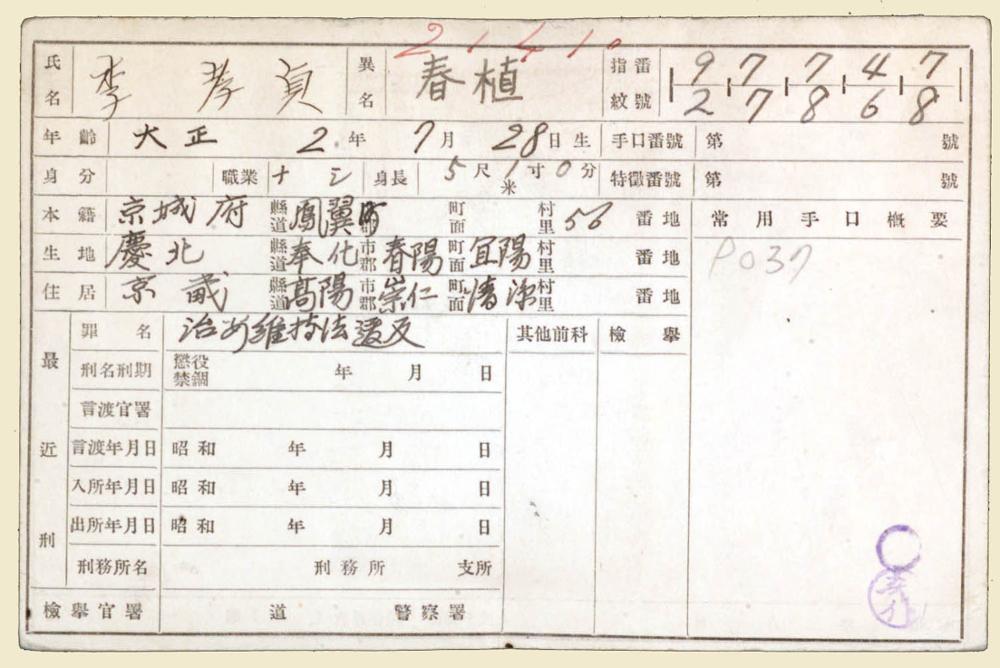 2 1 4 1.
氏名 李孝貞 異名 春植 指紋番號 9 7 7 4 7
2 7 8 6 8
年齡 大正 2年 7月 28日生 手口番號 第 號
身分 職業 ナシ 身長 5尺1寸0分 米 特徵番號 第 號
本籍 京城府 縣道 鳳翼町 町面 村里 56 番地 常用手口槪要
生地 慶北 縣道 奉化 市郡 春陽 町面 宜陽 村里 番地 P037
住居 京畿 縣道 高陽 市郡 崇仁 町面 淸涼 村里 番地
最近刑 罪名 治安維持法違反 其他前科 檢擧
刑名刑期 懲役 禁錮 年 月 日
言渡官署
言渡年月日 昭和 年 月 日
入所年月日 昭和 年 月 日
出所年月日 昭和 年 月 日
刑務所名 刑務所 支所
檢擧官署 道 警察署